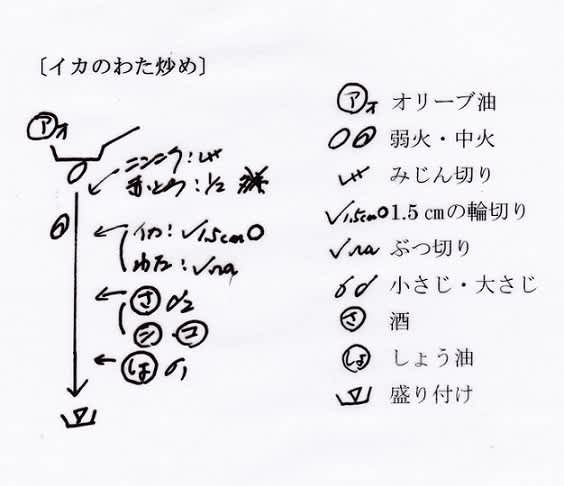 〔イカのわた炒め〕
ア オ
ニンニク:
1/2
イカ:✓1.5cm○
わた:✓
さ 2
シ・コ
しょ 1
ア オ オリーブ油
弱火・中火
みじん切り
✓1.5cm○ 1.5㎝の輪切り
✓ ぶつ切り
小さじ・大さじ
さ 酒
しょ しょう油
盛り付け